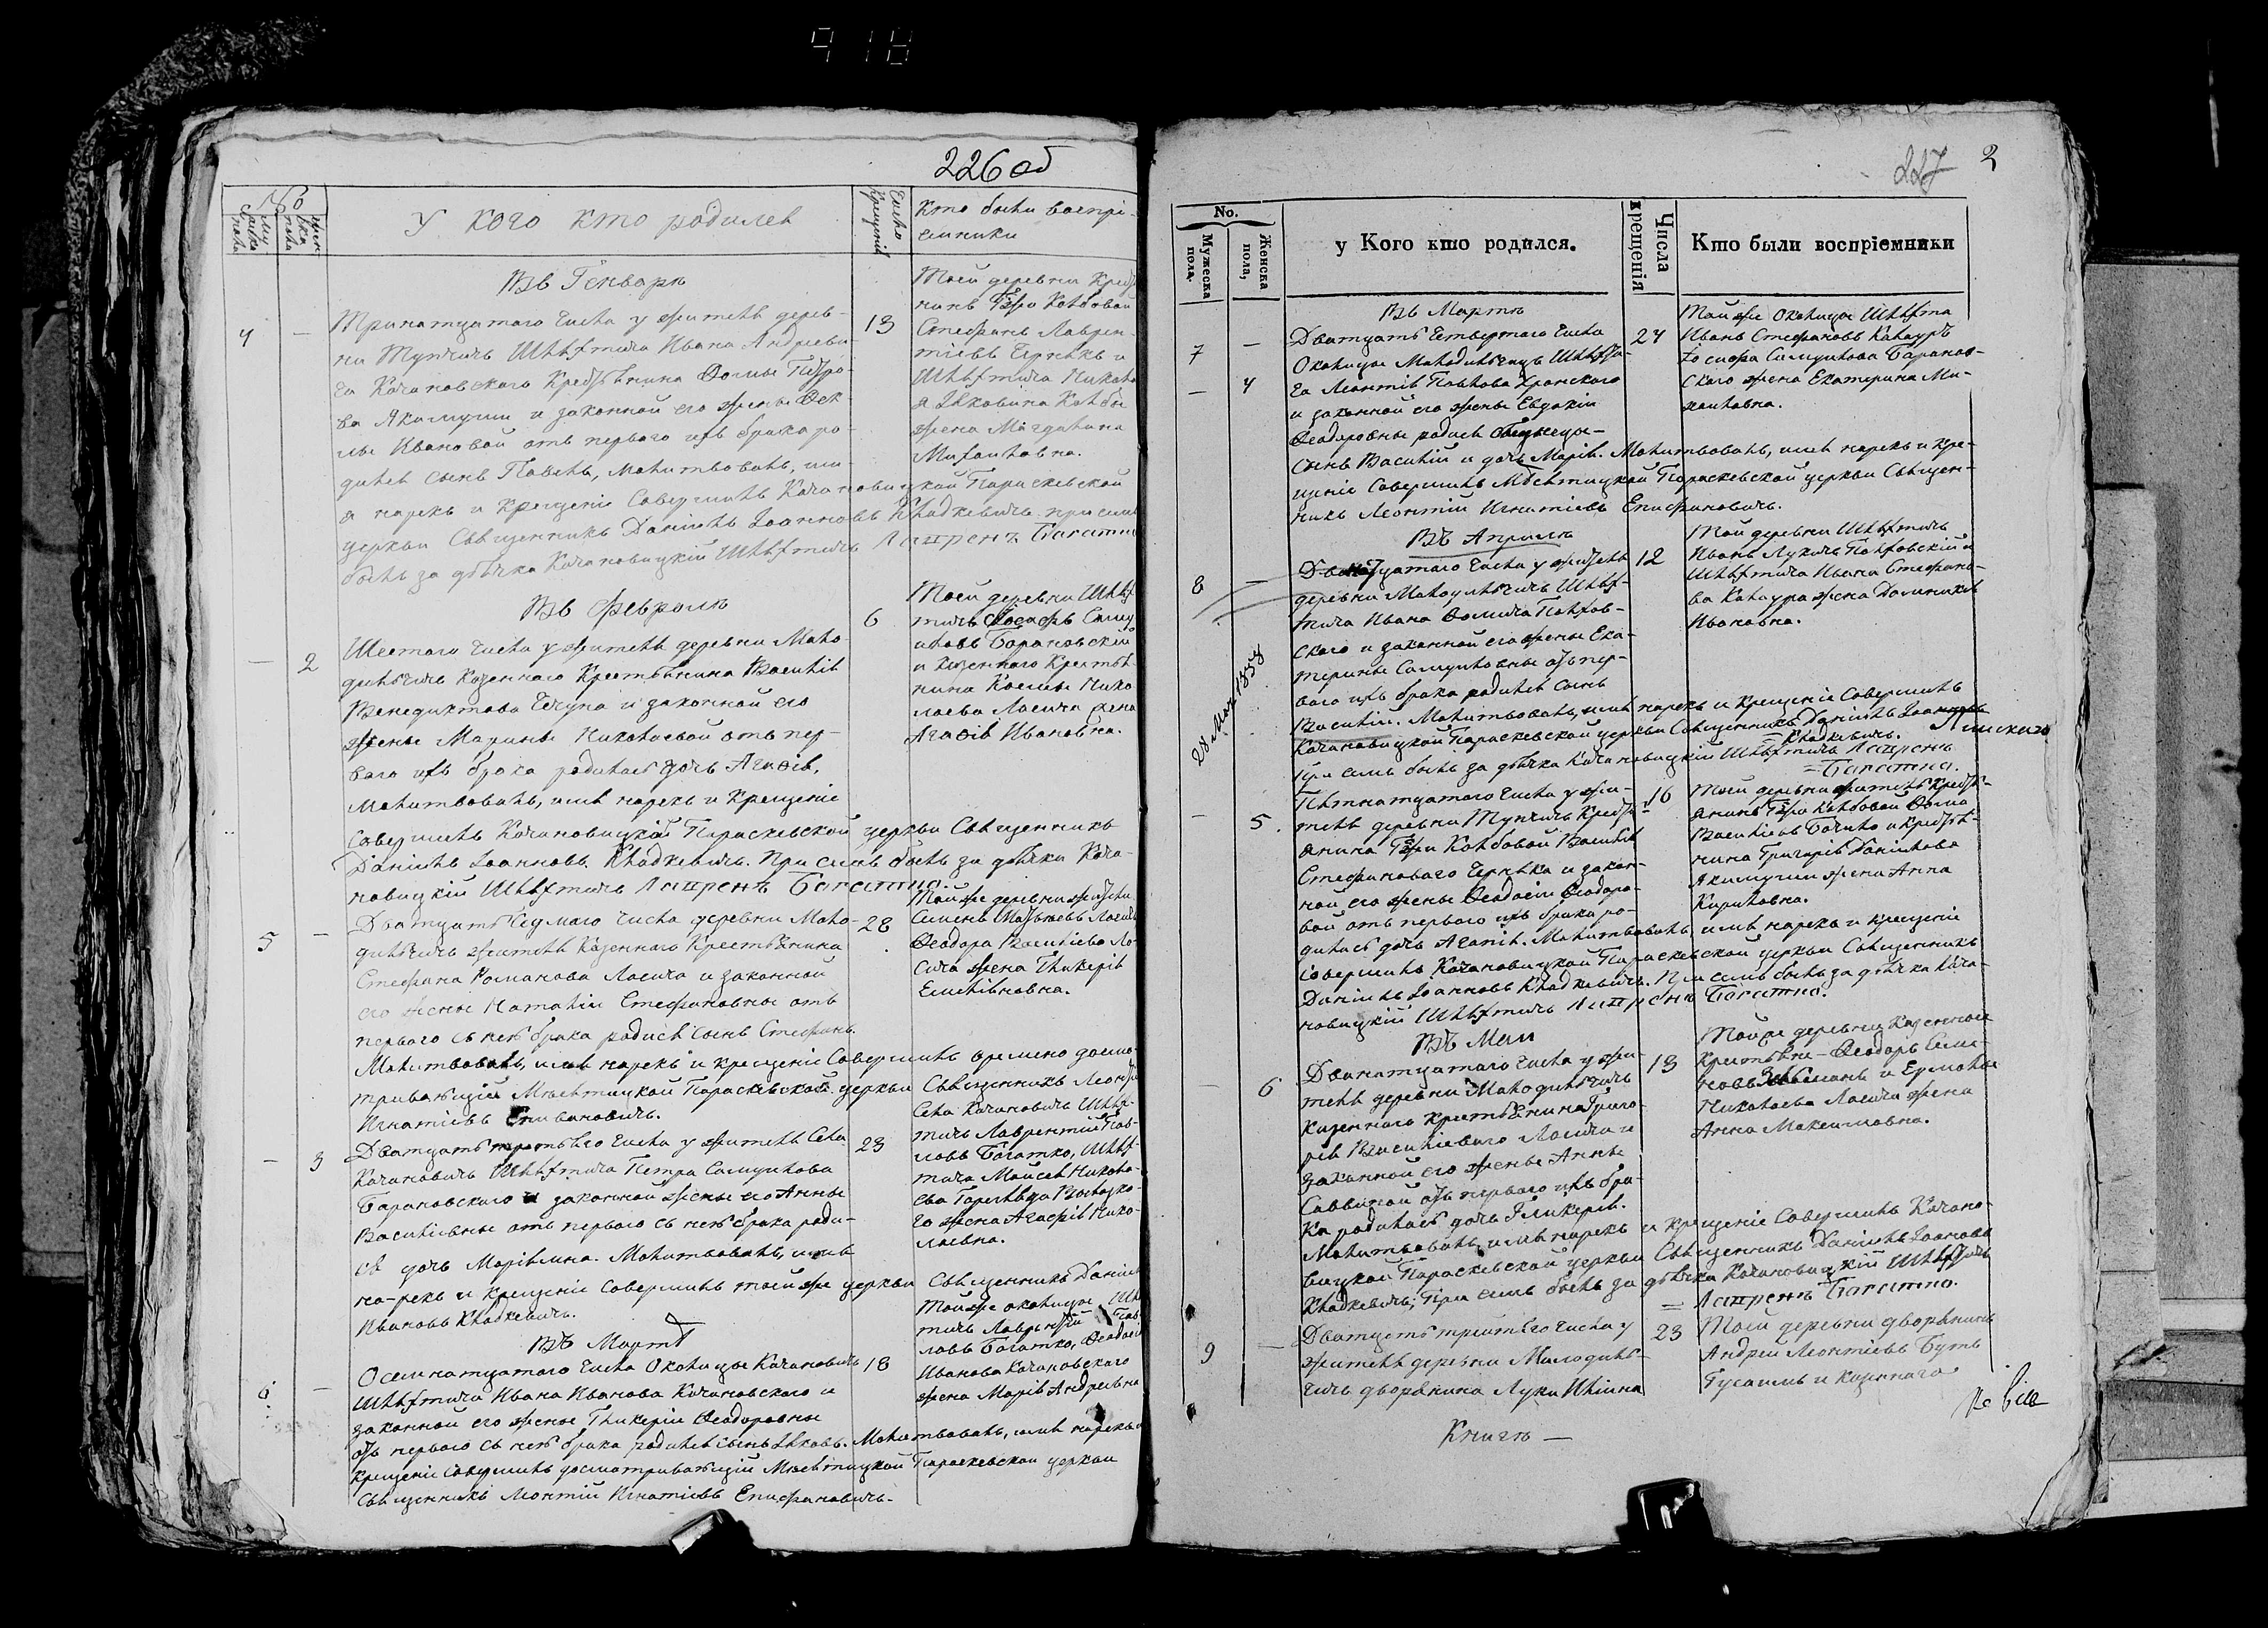 918
226 об
No
Мужеска пола
Женска пола
У кого кто родился
Число Крещенія
Кто были воспрі-
емники
Въ Генваръ
4
Тринатцатаго числа у жителъ дерев-
ни Тупчичъ Шляхтича Ивана Андрееви-
ча Качановскаго Крестьянина Ѳомы Петро-
ва Якимчука и законной его жены Ѳек
лы Ивановой отъ перваго ихъ брака ро-
дился сынъ Павелъ, молитвовалъ, им-
я нарекъ и крещеніе Совершилъ Качановицкой Параскевской
церкви Священникъ Даніилъ Іоанновъ Хладкевичъ при семъ
былъ за дьячка Качановицкій Шляхтичъ Лапренъ Багатко
13
Тоей деревни Крест
Стефанъ Лаврен-
тіевъ Чернякъ и
Шляхтича Никола
жена Магдалина
Михаиловна.
Въ Февралъ
2
Шестаго числа у жителъ деревни Мало-
дильчичъ Казеннаго Крестьянина Василія
Венедиктова Чечупа и законной его
жены Марины Николаевой отъ пер-
ваго ихъ брака родилась дочь Агафія,
молитвовалъ, имя нарекъ и Крещеніе
Совершилъ Качановицкой Параскевской церкви Священникъ
Даніилъ Іоанновъ Хладкевичъ. При семъ былъ за дьячка Кача-
новицкій Шляхтичъ Лапренъ Багатко.
6
Тоей деревни Шлях
тичъ Іосифъ Саму
иловъ Барановскій
и казеннаго Крестья-
нина Космы Нико
лаева Лосича жена
Агафія Ивановна.
5
Дватцать Седмаго числа деревни Мало-
дильчичъ жителъ Казеннаго Крестьянина
Стефана Романова Лосича и законной
его жены Наталіи Стефановны отъ
перваго съ нею брака родился сынъ Стефанъ.
Молитвовалъ, имя нарекъ и крещеніе Совершилъ времено досмо-
тривающій Мястицкой Параскевской церкви Священникъ Леонтій
Игнатіевъ Епифановичъ.
28
Той же деревни жители
Семенъ Матвеевъ Лосичъ
Ѳеодора Васильева Ло-
сича жена Гликерія
Емеліяновна.
3
Дватцать третьяго числа у жителя Села
Качановичъ Шляхтича Петра Самуилова
Барановскаго и законной жены его Анны
Васильевны отъ перваго съ нею брака роди-
ся дочь Маріямна. Молитвовалъ, имя
на-рекъ и Крещеніе Совершилъ тоей же церкви Священникъ Даніилъ
Ивановъ Хладкевичъ.
23
Села Качановичъ Шлях-
тичъ Лаврентій Пав-
ловъ Багатко, Шлях-
тича Мойсея Никола-
жена Агафія Нико-
лаевна.
Въ Мартѣ
6
Осемнатцатаго числа Околицы Качановичъ
Шляхтича Ивана Иванова Качановскаго и
законной его жены Гликеріи Ѳеодоровны
отъ перваго съ нею брака родился сынъ Яковъ. Молитвовалъ, имя нарекъ и
Крещеніе Совершилъ досматривающій Мястицкой Параскевской церкви
Священникъ Леонтій Игнатіевъ Епифановичъ.
18
Той же околицы Шлях
тичъ Лаврентій Пав-
ловъ Багатко, Ѳеодосія
Иванова Качановскаго
жена Марія Андреевна
227
2
No.
Мужеска пола.
Женска пола,
у Кого кто родился.
Числа крещенія
Кто были воспріемники
Въ Мартъ
7
4
Дватцать Четвертаго числа
Околицы Малодильчицъ Шляхти-
ча Леонтія Павлова Хранскаго
и законной его жены Евдокіи
Ѳеодоровны родися близнецы-
Сынъ Василій и дочь Марія. Молитвовалъ, имя нарекъ и Кре-
щеніе Совершилъ Мястицкой Параскевской церкви Священ-
никъ Леонтій Игнатіевъ Епифановичъ.
24
Той же Околицы Шляхта
Иванъ Стефановъ Кацуръ
Іосифа Самуилова Баранов-
скаго жена Екатерина Ми-
хаиловна.
Въ Апрелъ
8
28 Мая 1858
Дванатцатаго числа у жителъ
деревни Малодильчичъ Шлях-
тича Ивана Ѳомича Пахов-
скаго и законной его жены Ека-
терины Самуиловны отъ пер-
ваго ихъ брака родился сынъ
Василій. Молитвовалъ, имя нарекъ и Крещеніе Совершилъ
Качановицкой Параскевской церкви Священникъ Даніилъ Іоанновъ
Хладкевичъ.
При семъ былъ за дьячка Качановицкій Шляхтичъ Лапренъ
Багатко.
12
Той деревни Шляхтичъ
Иванъ Лукичъ Паховскій и
Шляхтича Ивана Стефано-
ва Кацура жена Доминикія
Ивановна.
5
Пятнатцатаго числа у жи-
телъ деревни Тупчичъ Кресть-
янина Гжи Колбовой Василія
Стефановаго Черняка и закон-
ной его жены Ѳеодосіи Ѳеодоро-
вой отъ перваго ихъ брака ро-
дилась дочь Агапія. Молитвовалъ имя нарекъ и крещеніе
Совершилъ Качановицкой Параскевской церкви Священникъ
Даніилъ Іоанновъ Хладкевичъ. При семъ былъ за дьячка Кача-
новицкій Шляхтичъ Лапренъ Багатко.
16
Тоей деревни жителъ Кресть-
янинъ Гжи Колбовой Ѳома
нина Григорія Даніилова
Якимчука жена Анна
Кириловна.
Въ Маи
6
Дванатцатаго числа у жи-
телъ деревни Малодильчичъ
Казеннаго Крестьянина Григо-
рія Васильеваго Лосича и
законной его жены Анны
Саввиной отъ перваго ихъ бра-
ка родилась дочь Гликерія.
Молитвовалъ имя нарекъ и крещеніе Совершилъ Качано-
вицкой Параскевской церкви Священникъ Даніилъ Іоанновъ
Хладкевичъ; При семъ былъ за дьячка Качановицкій Шляхтичъ
Лапренъ Багатко.
13
Той же деревни Казенные
Крестьяне - Ѳеодоръ Семе-
новъ и Ермолы
Николаева Лосича жена
Анна Максимовна.
9
Дватцать третьяго числа у
жителъ деревни Малодиль-
чичъ дворянина Луки Иліина
23
Тоей деревни дворянинъ
Андрей Леонтіевъ Буть
Гусакъ и казеннаго
Книгъ —